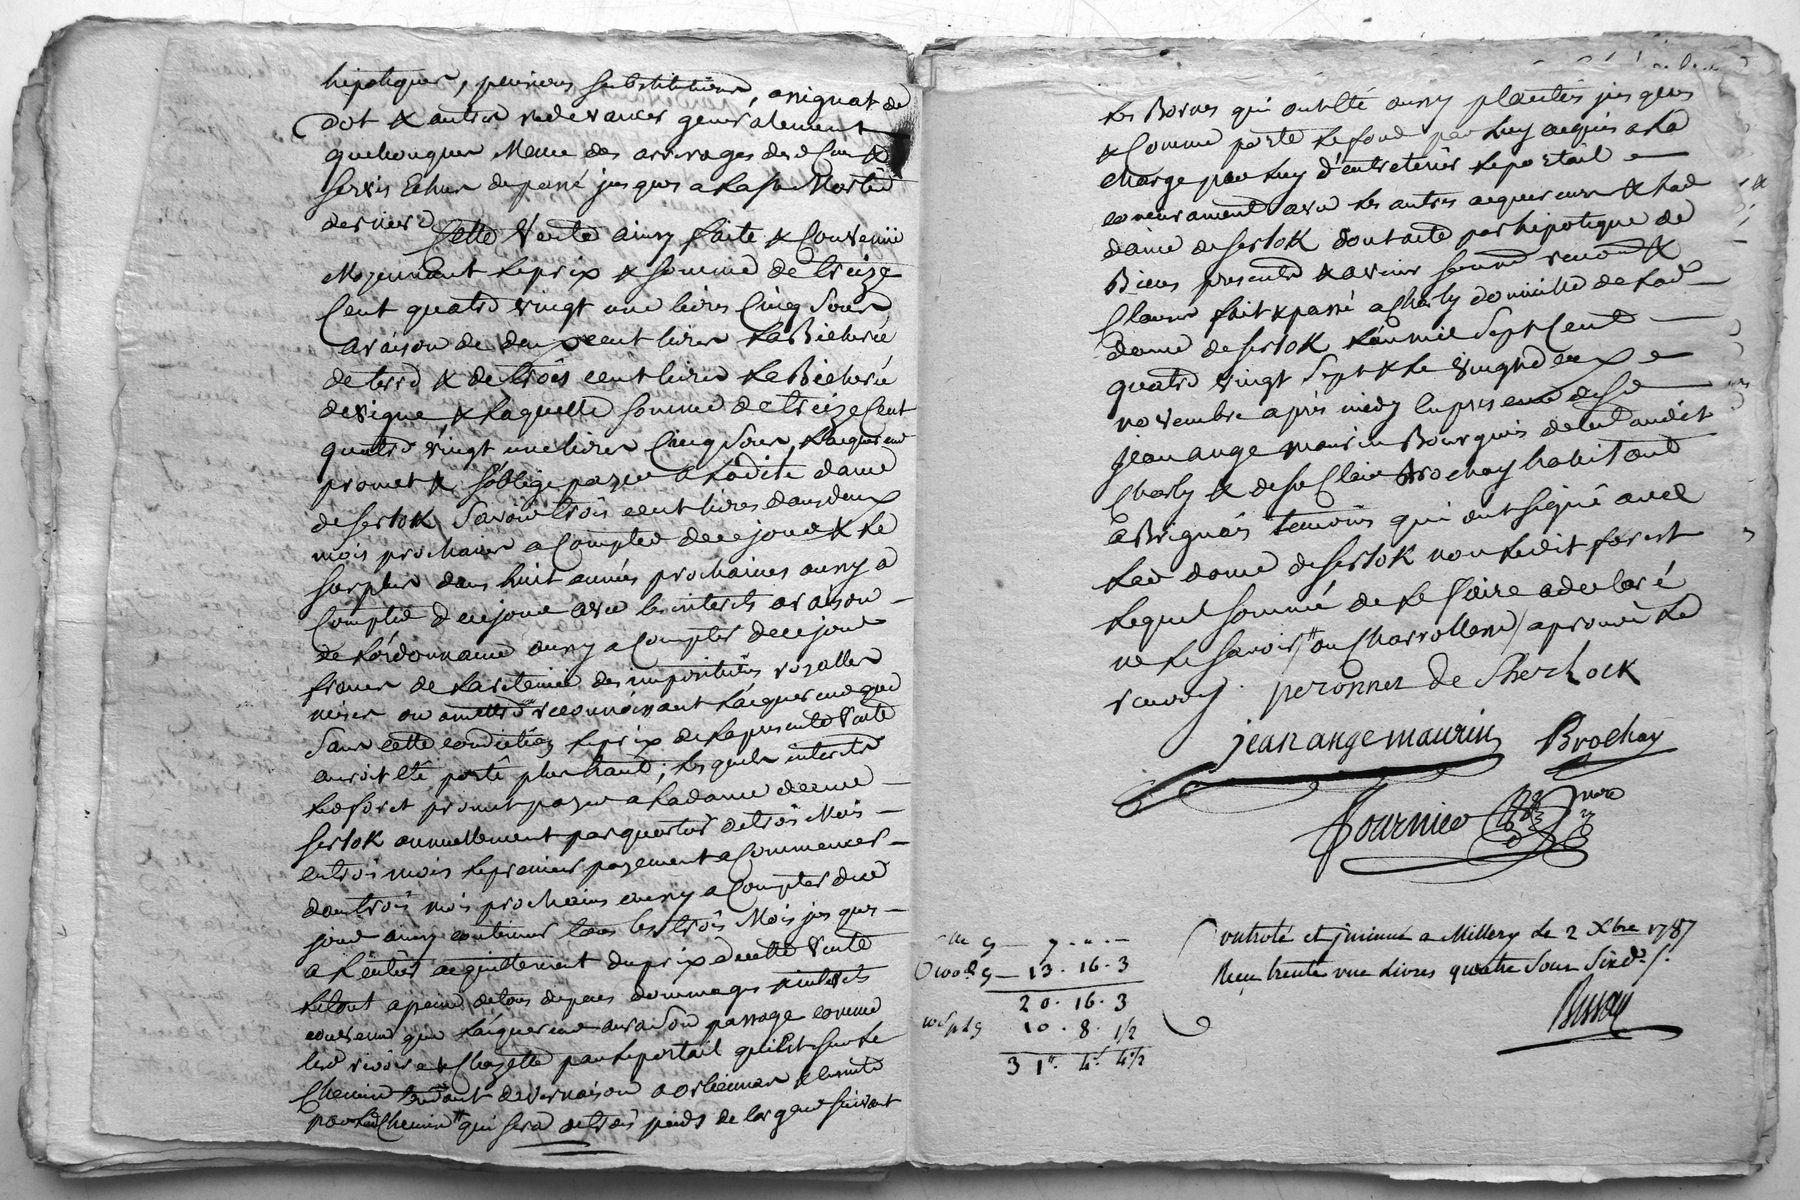 hipotiques, pensions substitutions, assignat de
Dot & autres redevances generalement
quelconques Meme des arrerages desd. Cens &
servis Echus du passé jusques a La St Martin
derniere
Cette Vente ainsy faite & Convenue
Moyennant Le prix & somme de treize
Cent quatre vingt une livres Cinq Sous
a raison de deux cent livres La Bicherée
de terre & de trois cent livres La Bicherée
de vigne, & Laquelle somme de treize Cent
quatre vingt une livres Cinq Sous, L'acquereur
promet & s'oblige payer a Ladite dame
de Serlok Savoir trois cent livres dans deux
mois prochains a Compter de ce jour & Le
surplus dans huit années prochaines aussy a
Compter de ce jour avec les interets a raison
de L'ordonnance aussy a Compter de ce jour
francs de La retenue des impositions royalles
mises ou a mettre reconnoissant L'acquereur que
Sans cette condition Le prix de La presente Vente
auroit eté porté plus haut; Lesquels interets
Led forest promet payer a Ladame de
Serlok annuellement par quartier de trois Mois
en trois mois Le premier payement a Commencer
dans trois mois prochains aussy a Compter de ce
jour ainsy continuer tous les trois Mois jusques
a L'entier acquittement du prix de cette Vente
Le tout a peine de tous depens dommages & interets
convenu que L'acquereur aura Son passage comme
Les rivoire & Chazette par Le portail qui Est sur Le
Chemin tendant de Vernaison a orlienas & Ensuite
par Led Chemin # qui Sera de trois pieds de largeur suivant
Les Bornes qui ont eté aussy plantées jusques
& Comme porte Le fond par Luy acquis a La
charge par Luy d'entretenir Le portail
concurament avec Les autres acquereurs & Lad
dame de Serlok dont acte par hipotique de
Biens presents & avenir soumis renon. &
Clauses fait & passé a Charly domicille de Lad
dame de Serlok L'an mil Sept Cent
quatre vingt Sept & Le vingt deux
novembre après midy En presence de Sr
jean ange maurin Bourgeois de
Charly & de Sr Brochay habitant
a Brignais temoins qui ont signé avec
Lad dame de Serlok non Ledit forest
Lequel sommé de Le faire a declaré
ne Le Savoir /# ou Charrollere/ aprouvé Le
renvoy. peronnet de Sherlock
jean ange maurin Brochay
fournier nore
Controlé et jnsinué a Millery Le 2 Xbre 1787
Reçu trente une Livres quatre Sous Six d. /.
7 . " . "
13 . 16 . 3
20 . 16 . 3
10 . 8 . 1/2
31 " . 4 s . 4 1/2